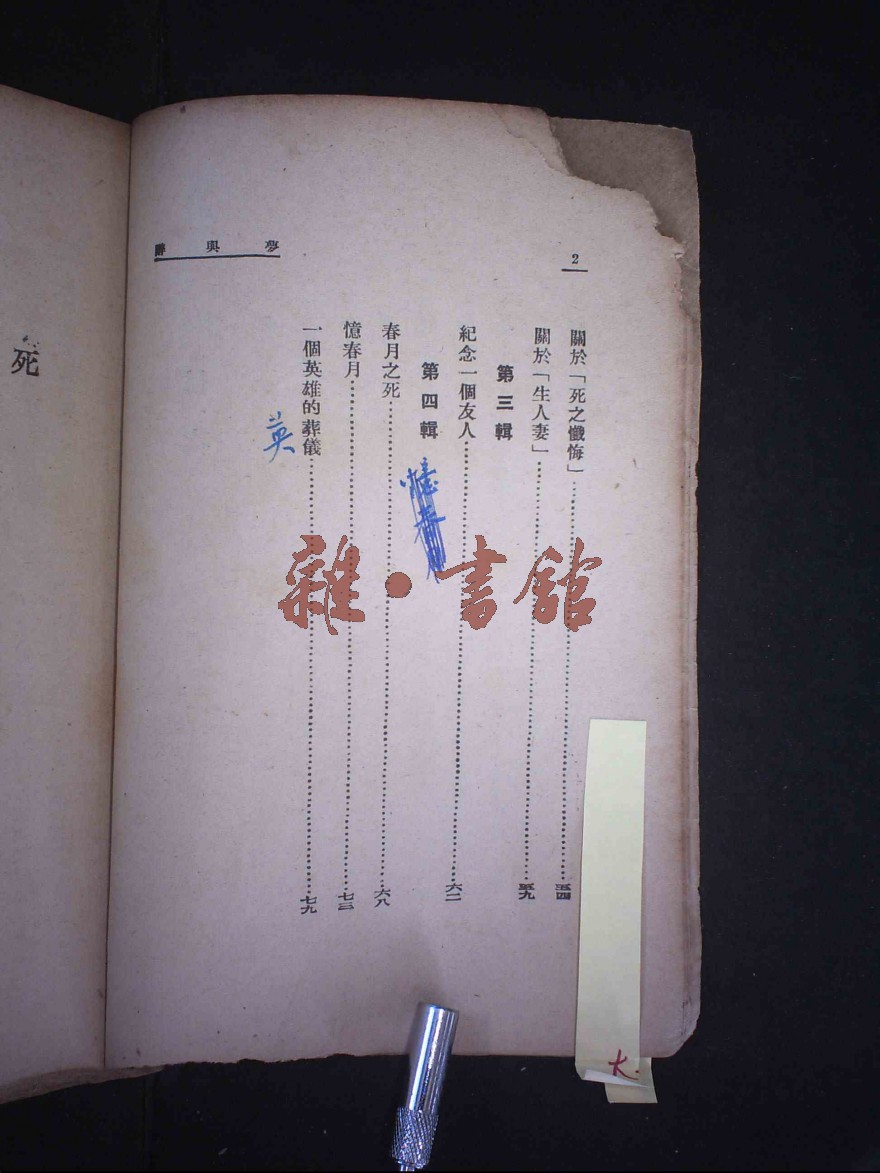 2
夢與醉
關於「死之懺悔」……五四
關於「生人妻」……五九
第三輯
紀念一個友人……六二
第四輯
春月之死……六八
憶春月……七三
一個英雄的葬儀……七九
憶春
英
雜·書館
死
K.